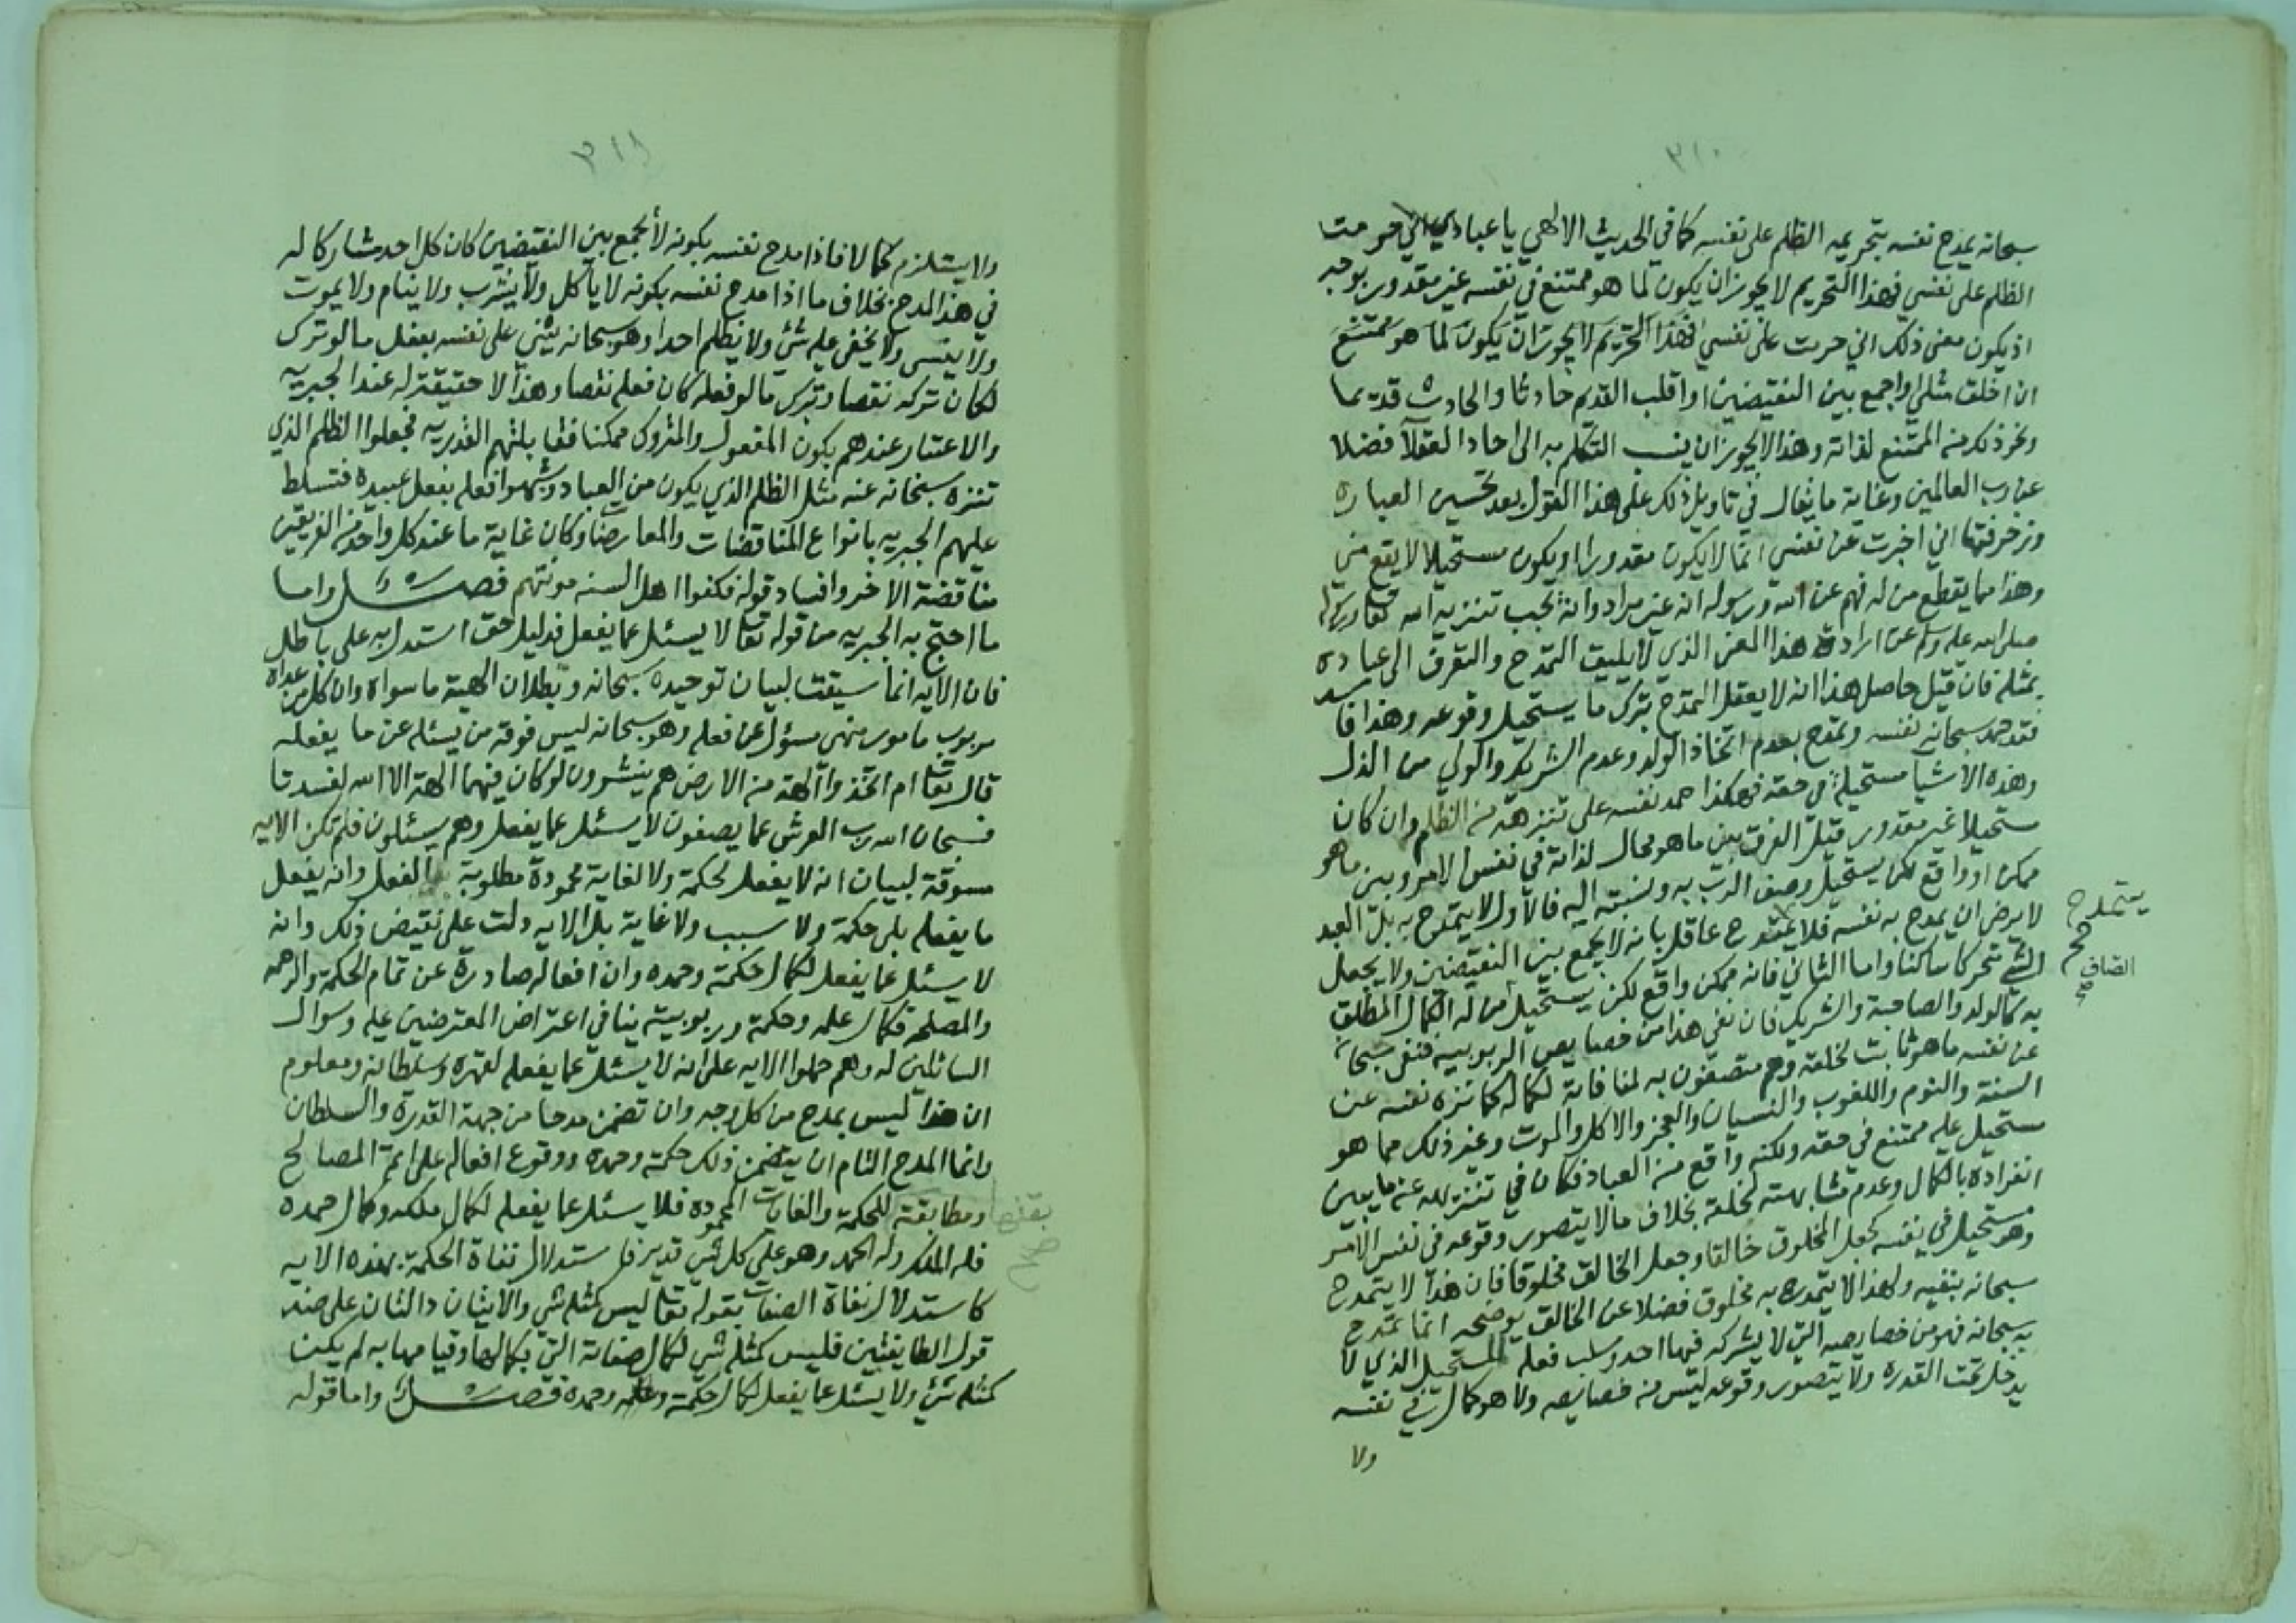 ٣١٠
سبحانه يمدح نفسه بتحريمه الظلم على نفسه كما في الحديث الالهي يا عبادي اني حرمت
الظلم على نفسي فهذا التحريم لا يجوز ان يكون لما هو ممتنع في نفسه غير مقدور بوجه
اذ يكون معنى ذلك اني حرمت على نفسي فهذا التحريم لا يجوز ان يكون لما هو ممتنع
ان اخلق مثلي او اجمع بين النقيضين او اقلب القديم حادثا والحادث قديما
ونحو ذلك من الممتنع لذاته وهذا لا يجوز ان ينسب التكلم به الى احاد العقلا فضلا
عن رب العالمين وغاية ما يقال في تاويل ذلك على هذا القول بعد تحسين العبارة
وزخرفتها اني اخبرت عن نفسي انما لا يكون مقدورا او يكون مستحيلا لا يقع مني
وهذا مما يقطع من له فهم عن الله ورسوله انه غير مراد وانه يجب تنزيه الله تعا ورسوله
صلى الله عليه وسلم عن ارادة هذا المعنى الذي لا يليق التمدح والتعرف الى عباده
بمثله فان قيل حاصل هذا انه لا يعقل التمدح بترك ما يستحيل وقوعه وهذا فاسد
فقد حمد سبحانه نفسه وتمدح بعدم اتخاذ الولد وعدم الشريك والولي من الذل
وهذه الاشيا مستحيلة في حقه فهكذا حمد نفسه على تنزهه من الظلم وان كان
مستحيلا غير مقدور قيل الفرق بين ما هو محال لذاته في نفس الامر وبين ما هو
ممكن او واقع لكن يستحيل وصف الرب به ونسبته اليه فالاول لا يتمدح به بل العبد
لا يرضى ان يمدح به نفسه فلا يتمدح عاقل بانه لا يجمع بين النقيضين ولا يجعل
يتمدح
صح
الشي متحركا ساكنا واما الثاني فانه ممكن واقع لكن يستحيل من له الكمال المطلق
به كالولد والصاحبة والشريك فان نفي هذا من خصايص الربوبية فنفى سبحانه
عن نفسه ما هو ثابت لخلقه وهم متصفون به لمنافاته لكماله كما نزه نفسه عن
السنة والنوم واللغوب والنسيان والعجز والاكل والموت وغير ذلك مما هو
مستحيل عليه ممتنع في حقه ولكنه واقع من العباد فكان في تنزيهه عنه ما يبين
انفراده بالكمال وعدم مشابهته لخلقه بخلاف ما لا يتصور وقوعه في نفس الامر
وهو مستحيل في نفسه كجعل المخلوق خالقا وجعل الخالق مخلوقا فان هذا لا يتمدح
سبحانه بنفيه ولهذا لا يتمدح به مخلوق فضلا عن الخالق يوضحه انما تمدح
به سبحانه فهو من خصايصه التي لا يشركه فيها احد وسلب فعل المستحيل الذي لا
يدخل تحت القدرة ولا يتصور وقوعه ليس من خصايصه ولا هو كمال في نفسه
ولا
٣١١
ولا يستلزم كمالا فاذا مدح نفسه بكونه لا يجمع بين النقيضين كان كل احد مشاركا له
في هذا المدح بخلاف ما اذا مدح نفسه بكونه لا ياكل ولا يشرب ولا ينام ولا يموت
ولا ينسى ولا يخفى عليه شئ ولا يظلم احدا وهو سبحانه يثني على نفسه بفعل ما لو ترك
لكان تركه نقصا وبترك ما لو فعله كان فعله نقصا وهذا لا حقيقة له عند الجبريه
والاعتبار عندهم بكون المفعول والمتروك ممكنا فقابلتهم القدريه فجعلوا الظلم الذي
تنزه سبحانه عنه مثل الظلم الذي يكون من العباد وشبهوا فعله بفعل عبيده فتسلط
عليهم الجبريه بانواع المناقضات والمعارضات وكان غاية ما عند كل واحد من الفريقين
مناقضة الاخر وافساد قوله فكفوا اهل السنه مونتهم فصل واما
ما احتج به الجبريه من قوله تعا لا يسئل عما يفعل فدليل حق استدل به على باطل
فان الايه انما سيقت لبيان توحيده سبحانه وبطلان الهية ما سواه وان كل من عداه
مربوب مامور منهي مسؤل عن فعله وهو سبحانه ليس فوقه من يسئله عن ما يفعله
قال تعا ام اتخذوا آلهة من الارض هم ينشرون لو كان فيهما الهة الا الله لفسدتا
فسبحان الله رب العرش عما يصفون لا يسئل عما يفعل وهم يسئلون فلم تكن الايه
مسوقة لبيان انه لا يفعل لحكمة ولا لغاية محمودة مطلوبة بالفعل وانه يفعل
ما يفعله بلى حكمة ولا سبب ولا غاية بل الايه دلت على نقيض ذلك وانه
لا يسئل عما يفعل لكمال حكمته وحمده وان افعاله صادرة عن تمام الحكمة والرحمه
والمصلحه فكمال علمه وحكمته وربوبيته ينافي اعتراض المعترضين عليه وسوال
السائلين له وهم حملوا الايه على انه لا يسئل عما يفعله لقهره وسلطانه ومعلوم
ان هذا ليس بمدح من كل وجه وان تضمن مدحا من جهة القدرة والسلطان
وانما المدح التام ان يتضمن ذلك حكمته وحمده ووقوع افعاله على اتم المصالح
ومطابقته للحكمة والغايات المحموده فلا يسئل عما يفعله لكمال ملكه وكمال حمده
فله الملك وله الحمد وهو على كل شي قدير فاستدلال نفاة الحكمة بهذه الايه
كاستدلال نفاة الصفات بقوله تعا ليس كمثله شي والايتان دالتان على ضد
قول الطايفتين فليس كمثله شي لكمال صفاته التي بكمالها وقيامها به لم يكن
كمثله شئ ولا يسئل عما يفعل لكمال حكمته وعلمه وحمده فصل واما قوله